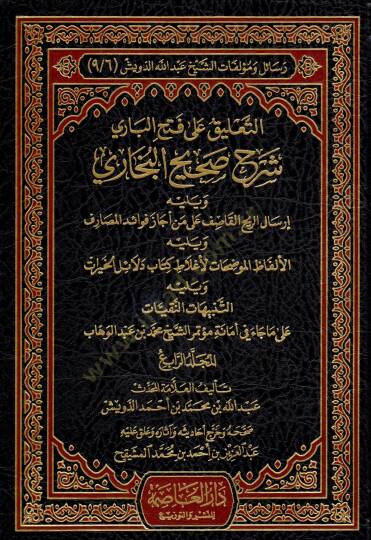 رسائل ومؤلفات الشيخ عبد الله الدويش (٩/٦)
التعليق على فتح الباري
شرح صحيح البخاري
ويليه
إرسال الريح القاصف على من أجاز فوائد المصارف
ويليه
الألفاظ الموضحات لأغلاط كتاب دلائل الخيرات
ويليه
التنبيهات النقيات
على ما جاء في أمانة مؤتمر الشيخ محمد بن عبد الوهاب
المجلد الرابع
تأليف العلامة المحدث
عبد الله بن محمد بن أحمد الدويش
صححه وخرج أحاديثه وآثاره وعلق عليه
عبد العزيز بن أحمد بن محمد المشيقح
دار العاصمة
للنشر والتوزيع